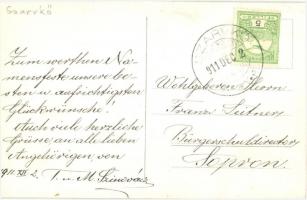 Szarvkő
Zum werthen Na-
mensfeste unsere be-
sten u. aufrichtigsten
Glückwünsche!
Auch viele herzliche
Grüsse an alle lieben
Angehörigen, von
911. XII. 2. T. u. M. Szinovácz
911 DEC 2
5
Wohlgeboren Herrn
Franz Leitner
Bürgerschuldirector
Sopron.